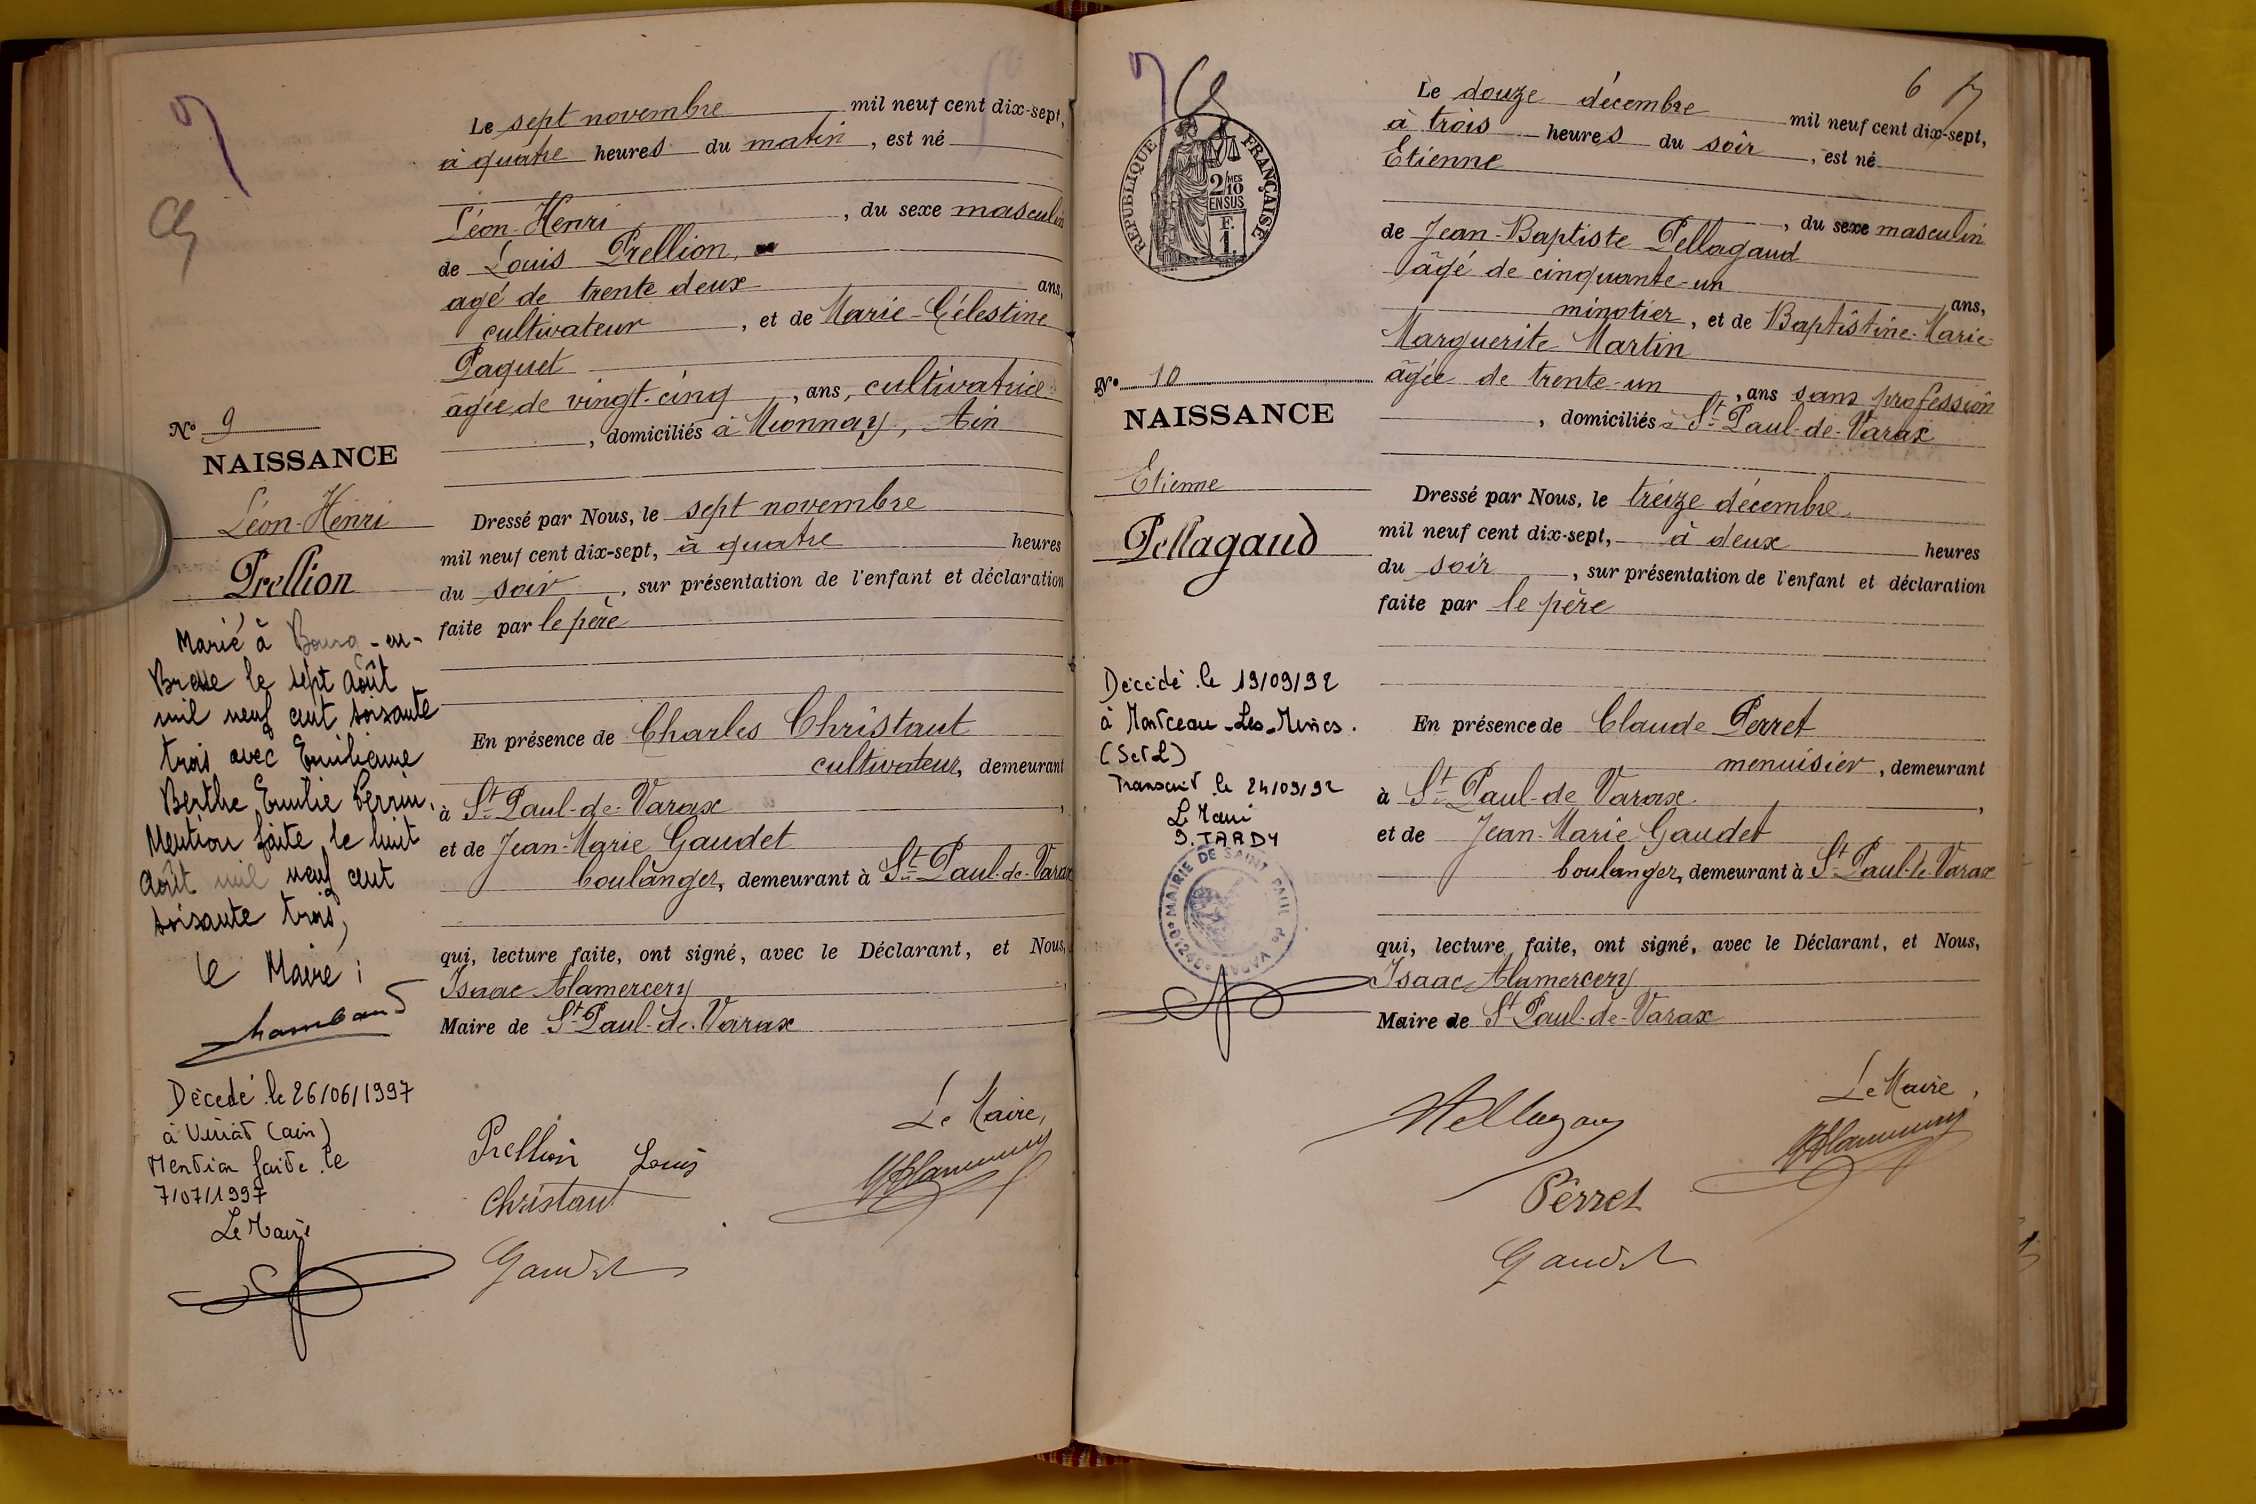 Le sept novembre mil neuf cent dix-sept,
à quatre heures du matin, est né
Léon-Henri, du sexe masculin
de Louis Prellion,
agé de trente deux ans,
cultivateur, et de Marie-Célestine
Paquet
âgée de vingt-cinq, ans, cultivatrice
, domiciliés à Mionnay, Ain
Nº 9
NAISSANCE
Léon-Henri
Prellion
Dressé par Nous, le sept novembre
mil neuf cent dix-sept, à quatre heures
du soir, sur présentation de l'enfant et déclaration
faite par le père
En présence de Charles Christaut
cultivateur, demeurant
à St Paul-de-Varax,
et de Jean-Marie Gaudet
boulanger, demeurant à St Paul-de-Varax
qui, lecture faite, ont signé, avec le Déclarant, et Nous,
Isaac Alamercery
Maire de St Paul-de-Varax
Marié à Bourg-en-
Bresse le sept Août
mil neuf cent soixante
trois avec Emilienne
Berthe Emilie Perrin.
Mention faite le huit
Août mil neuf cent
soixante trois,
le Maire :
Décédé le 26/06/1997
à Viriat (ain)
Mention faite le
7/07/1997
Le Maire
Prellion Louis
Christaut
Gaudet
Le Maire,
6
REPUBLIQUE FRANÇAISE
2 MES
10
EN SUS
F.
1.
Le douze décembre mil neuf cent dix-sept,
à trois heures du soir, est né
Etienne
, du sexe masculin
de Jean-Baptiste Pellagaud
âgé de cinquante-un ans,
minotier, et de Baptistine-Marie-
Marguerite Martin
âgée de trente-un, ans sans profession
, domiciliés à St Paul-de-Varax
Nº 10
NAISSANCE
Etienne
Pellagaud
Dressé par Nous, le treize décembre
mil neuf cent dix-sept, à deux heures
du soir, sur présentation de l'enfant et déclaration
faite par le père
En présence de Claude Perret
menuisier, demeurant
à St Paul-de Varax,
et de Jean-Marie Gaudet
boulanger, demeurant à St Paul-de-Varax
qui, lecture faite, ont signé, avec le Déclarant, et Nous,
Isaac Alamercery
Maire de St Paul-de-Varax
Décédé le 19/09/92
à Montceau-Les-Mines.
(S et L)
Transcrit le 24/09/92
Le Maire
D. TARDY
MAIRIE DE SAINT PAUL de VARAX
Le Maire,
Perret
Gaudet